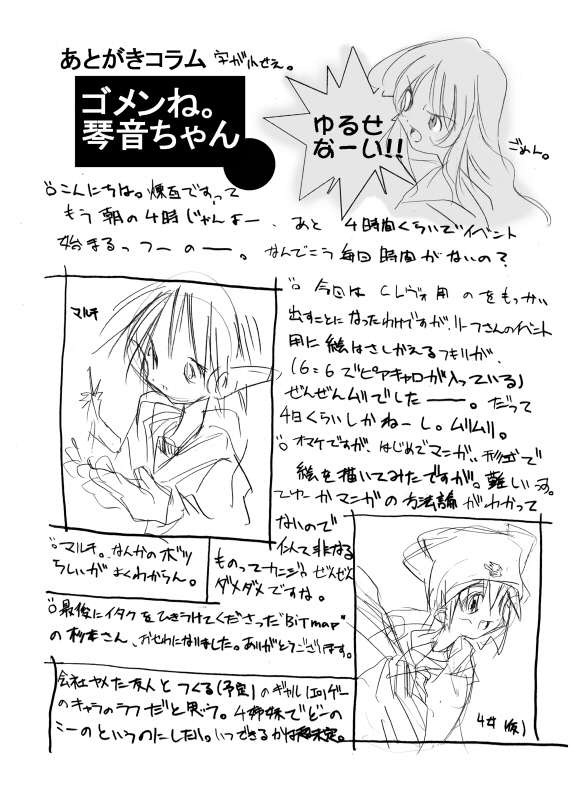 あとがきコラム 字が小せえ。
ゴメンね。
琴音ちゃん
ゆるせ
なーい!!
ごめん。
こんにちは。煉瓦ですって
もう朝の4時じゃんよー、あと 4時間くらいでイベント
始まるっつーのー。なんでこう毎回時間がないの?
マルチ
今回は CLヴォ用のをもっかい
出すことになったわけですが、リーフさんのイベント
用に絵はさしかえるつもりが、
(6=6でピアキャロが入っている)
ぜんぜんムリでしたーー。だって
4日くらいしかねーし。ムリムリ。
オマケですが、はじめてマンガ形式で
絵を描いてみたですが。難しい。
てゆーかマンガの方法論がわかって
ないので
似て非なる
ものってカンジ。ぜんぜん
ダメダメですな。
マルチ。なんかのボツ
らしいがよくわからん。
最後にイタクをひきうけてくださった"BiTmap"
の杉本さん、おせわになりました。ありがとうございます。
会社ヤメた友人とつくる(予定)のギャル(エロ)ゲー
のキャラのラフだと思う。4姉妹でどーの
こーのというのにしたい。いつできるかは未定。
4女(仮)